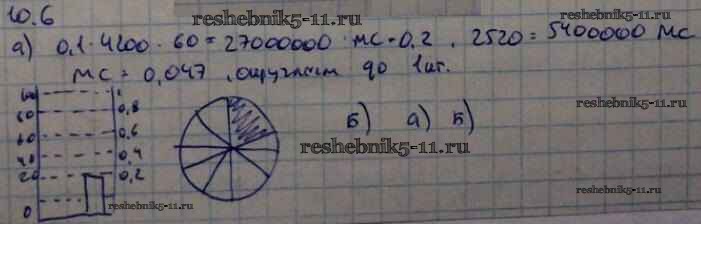 reshebnik5-11.ru
10.6
а) 0,1·4200·60=27000000·мс·0,2. 2520=5400000 мс
мс=0,047, округлаем до 1шт.
80 0,8
60 0,6
40 0,4
20 0,2
0
Б) а) Б)
reshebnik5-11.ru
reshebnik5-11.ru
reshebnik5-11.ru
reshebnik5-11.ru
reshebnik5-11.ru